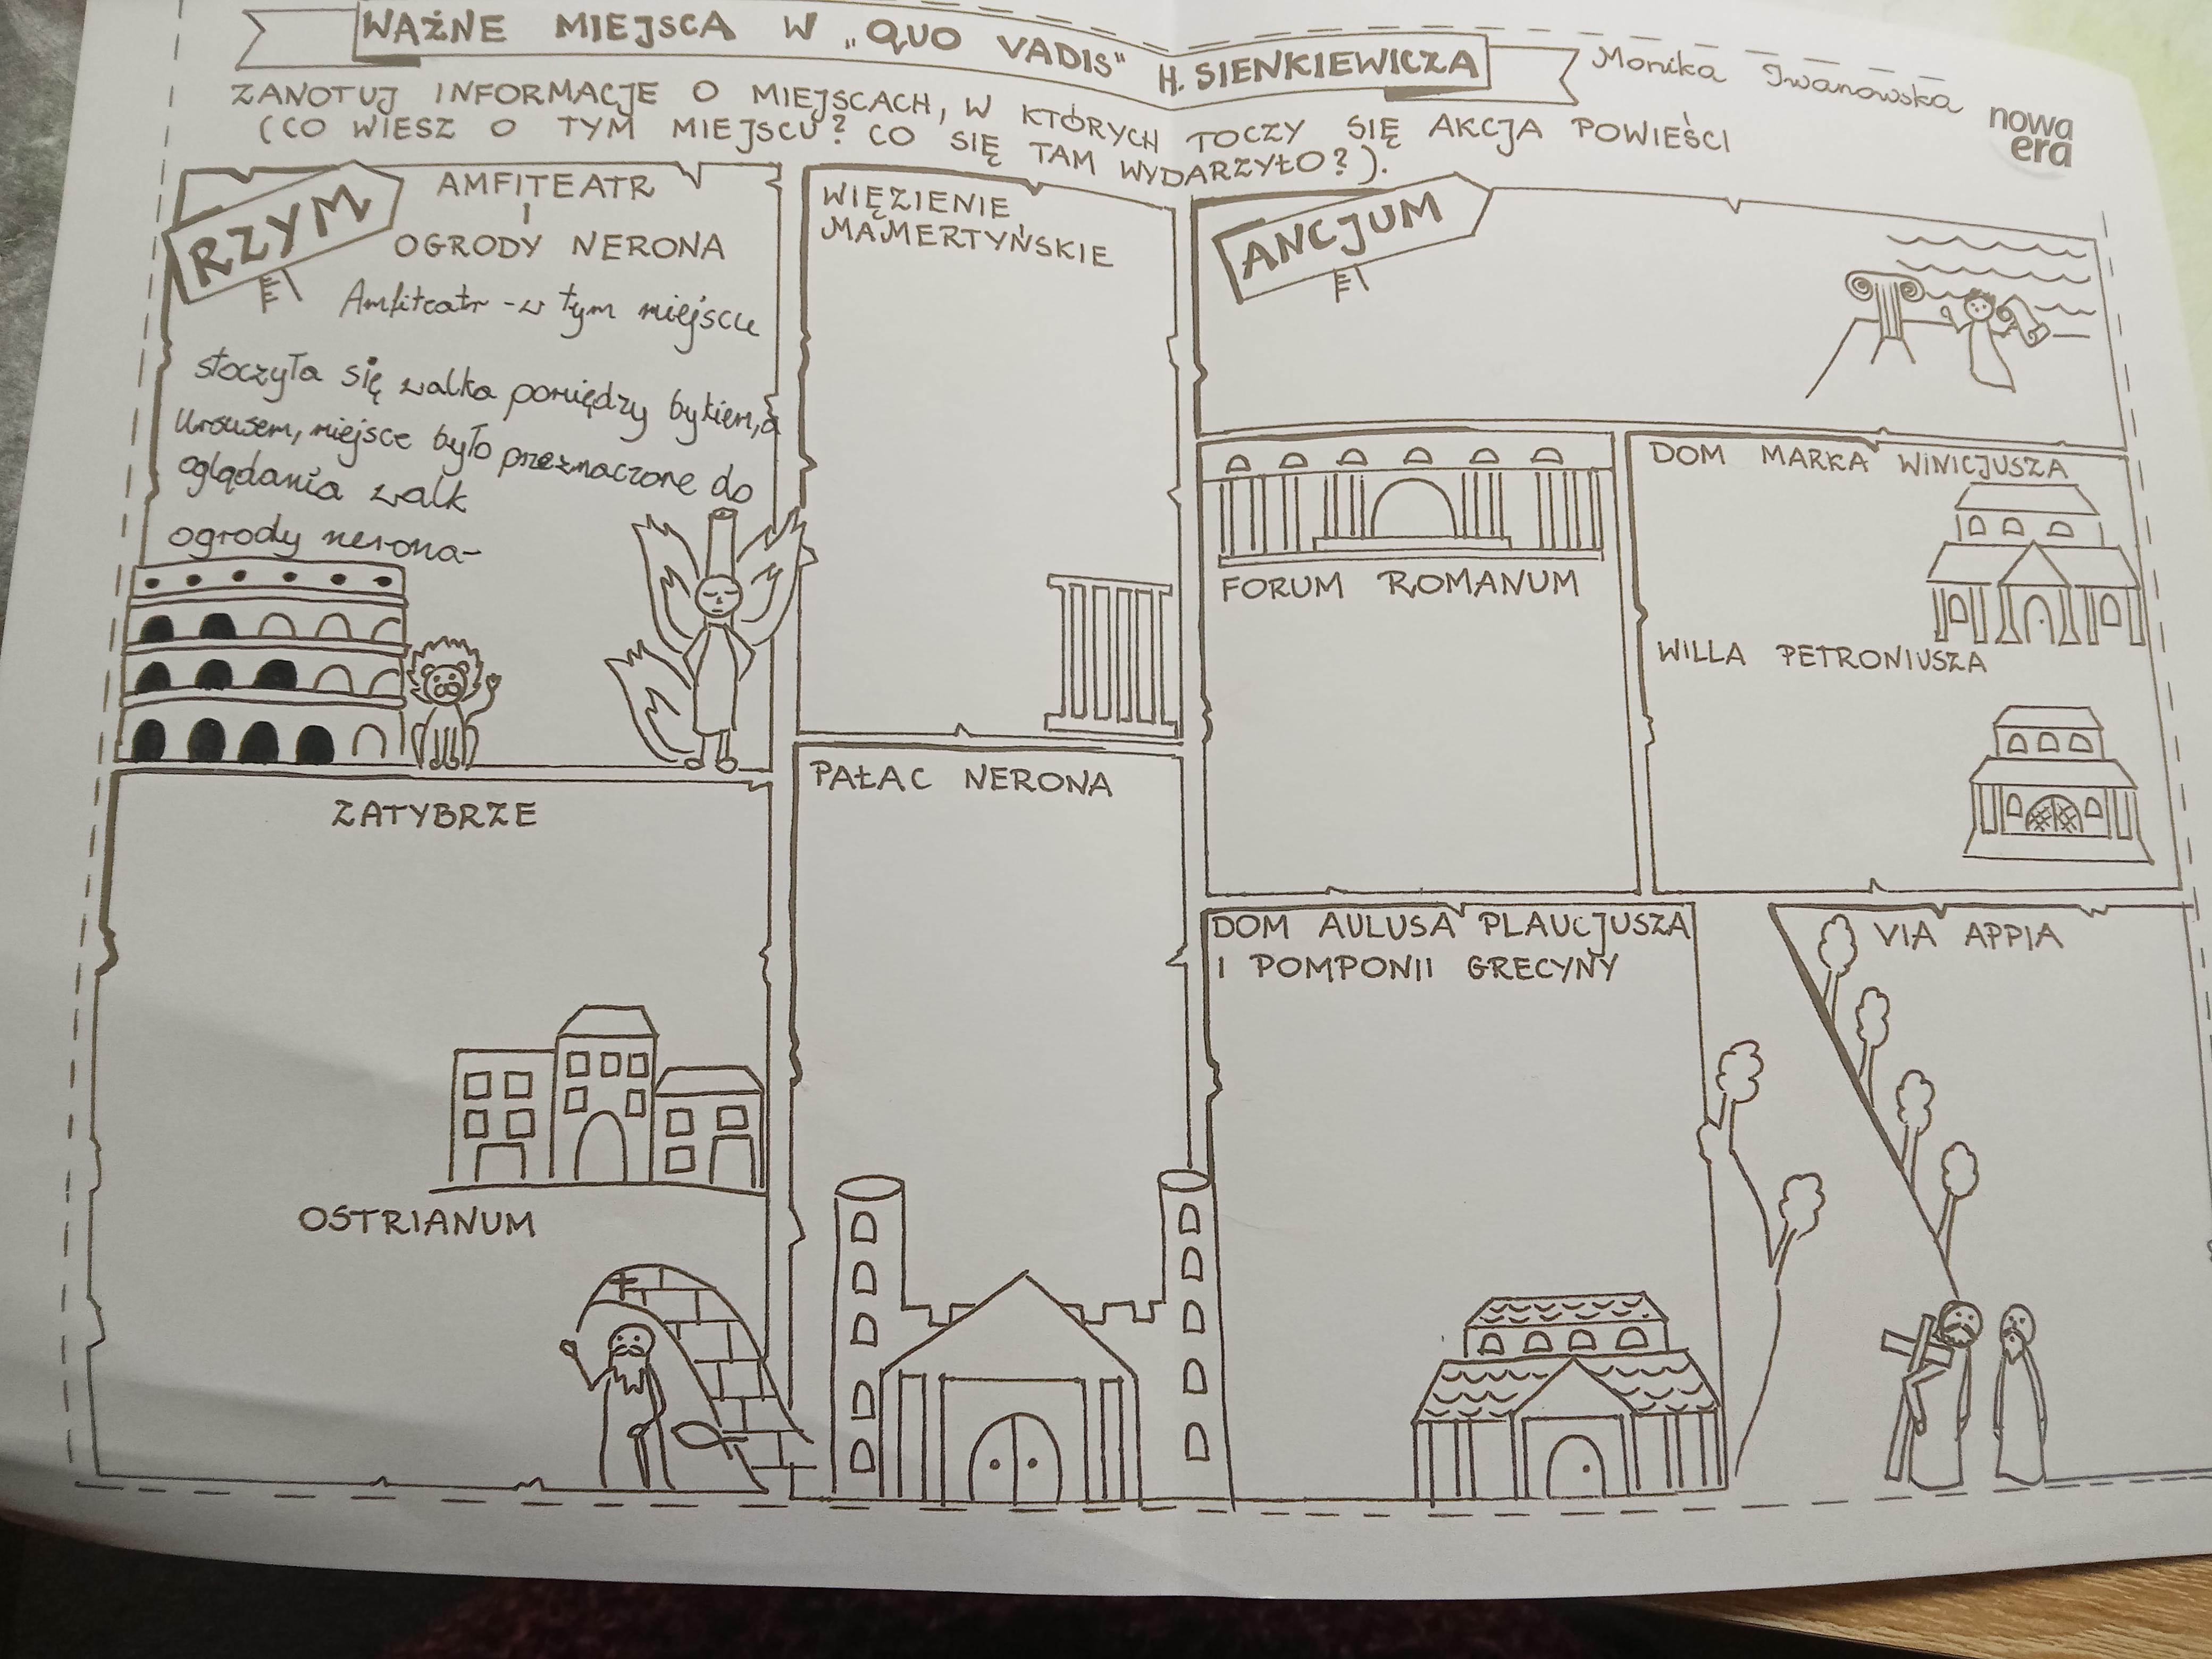 WAŻNE MIEJSCA W „QUO VADIS" H. SIENKIEWICZA
Monika Iwanowska
nowa
era
ZANOTUJ INFORMACJE O MIEJSCACH, W KTÓRYCH TOCZY SIĘ AKCJA POWIEŚCI
(CO WIESZ O TYM MIEJSCU? CO SIĘ TAM WYDARZYŁO?).
RZYM
AMFITEATR
I
OGRODY NERONA
Amfiteatr - w tym miejscu
stoczyła się walka pomiędzy bykiem, a
Ursusem, miejsce było przeznaczone do
oglądania walk
ogrody nerona-
WIĘZIENIE
MAMERTYŃSKIE
ANCJUM
FORUM ROMANUM
DOM MARKA WINICJUSZA
WILLA PETRONIUSZA
ZATYBRZE
OSTRIANUM
PAŁAC NERONA
DOM AULUSA PLAUCJUSZA
I POMPONII GRECYNY
VIA APPIA